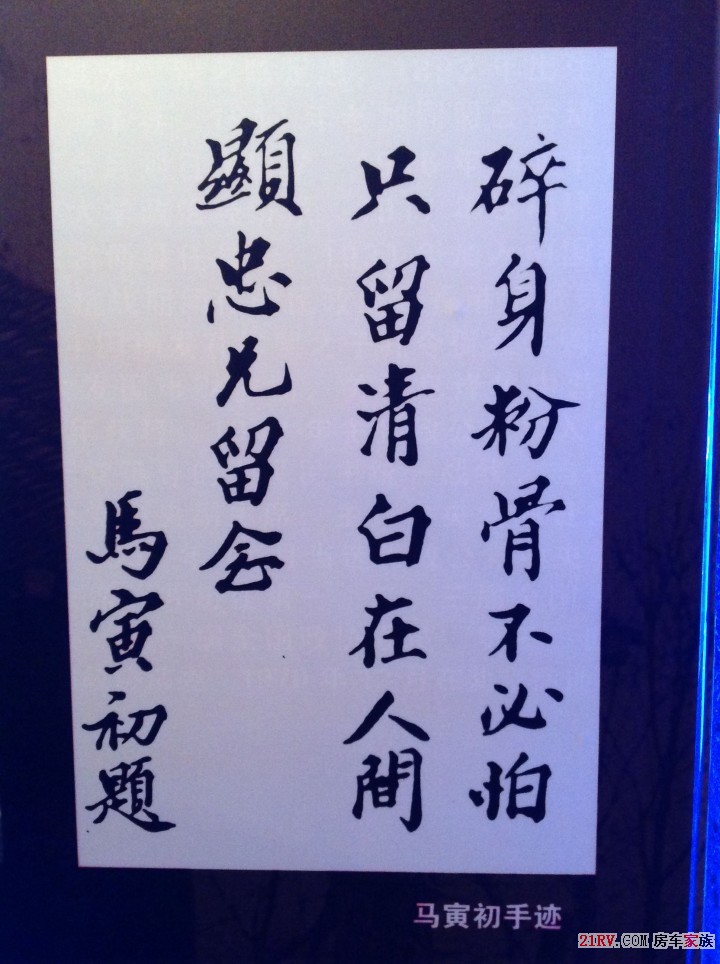 碎身粉骨不必怕
只留清白在人間
顯忠兄留念
馬寅初題
马寅初手迹
21RV.COM 房车家族